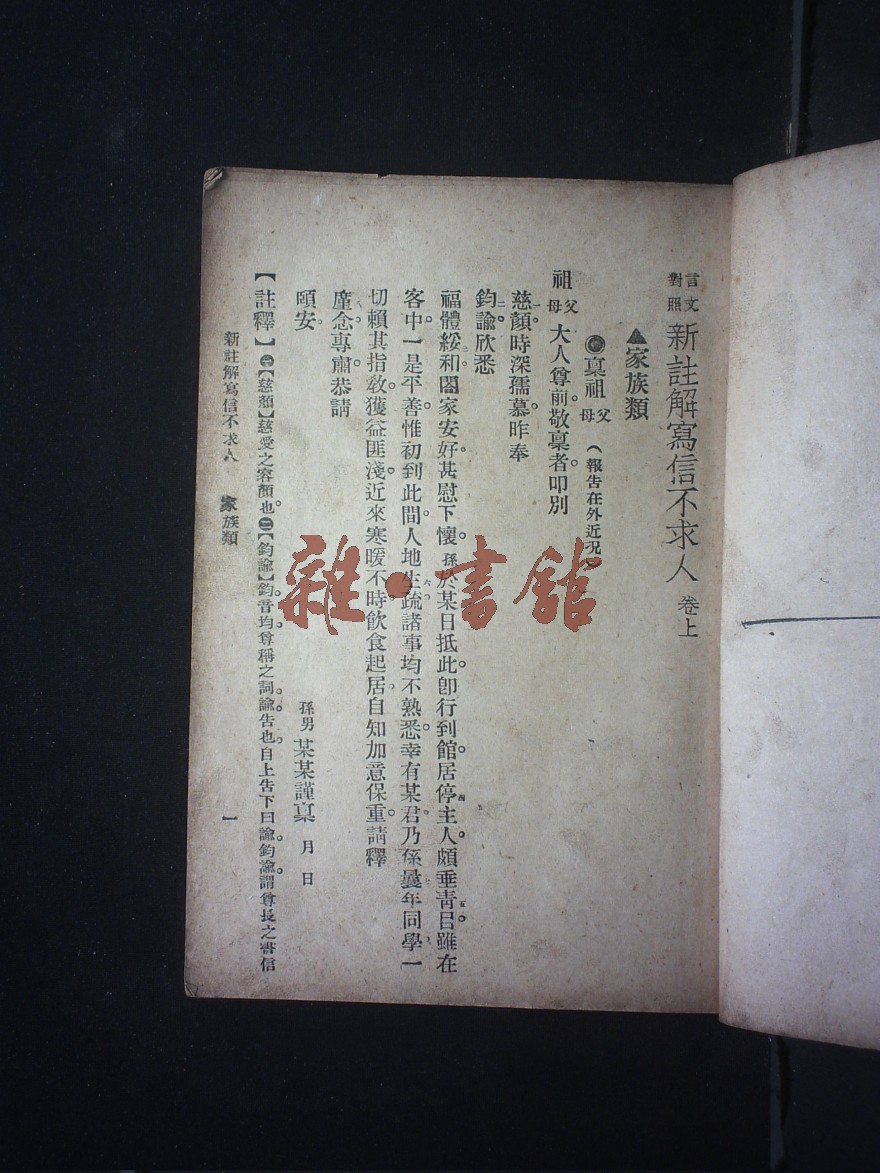 言文對照 新註解寫信不求人 卷上
▲家族類
◉稟祖父母（報告在外近況）
祖父母大人尊前敬稟者。叩別
慈顏時深孺慕。昨奉
鈞諭欣悉
福體綏和。闔家安好。甚慰下懷。孫於某日抵此。卽行到館。居停主人。頗垂靑目。雖在
客中。一是平善。惟初到此間。人地生疏。諸事均不熟悉。幸有某君。乃孫曩年同學。一
切賴其指敎。獲益匪淺。近來寒暖不時。飲食起居。自知加意保重。請釋
廑念。專肅恭請
頤安。
孫男 某某謹稟 月 日
【註釋】㊀【慈顏】慈愛之容顏也。㊁【鈞諭】鈞音均。尊稱之詞。諭。告也。自上告下曰諭。鈞諭。謂尊長之書信
新註解寫信不求人 家族類 一
雜·書館